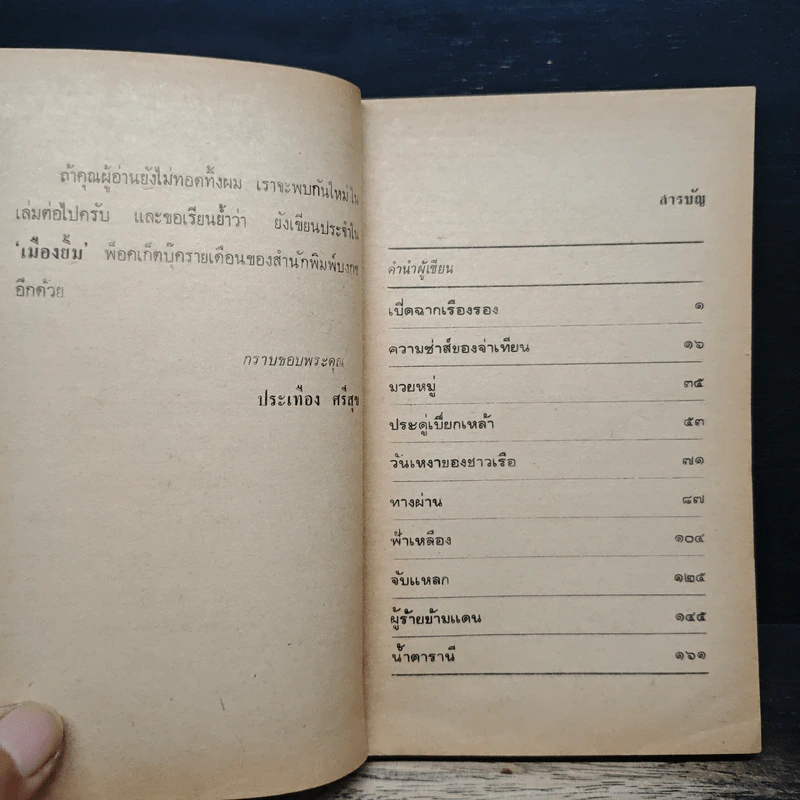 ถ้าคุณผู้อ่านยังไม่ทอดทิ้งผม เราจะพบกันใหม่ใน
เล่มต่อไปครับ และขอเรียนย้ำว่า ยังเขียนประจำใน
'เมืองยิ้ม' พ็อคเก็ตบุ๊ครายเดือนของสำนักพิมพ์บงกช
อีกด้วย
กราบขอบพระคุณ
ประเทือง ศรีสุข
สารบัญ
คำนำผู้เขียน
เปิดฉากเรืองรอง ๑
ความซ่าส์ของจ่าเทียน ๑๖
มวยหมู่ ๓๕
ประดู่เปียกเหล้า ๕๓
วันเหงาของชาวเรือ ๗๑
ทางผ่าน ๘๗
ฟ้าเหลือง ๑๐๔
จับแหลก ๑๒๕
ผู้ร้ายข้ามแดน ๑๔๕
น้ำตารานี ๑๖๑